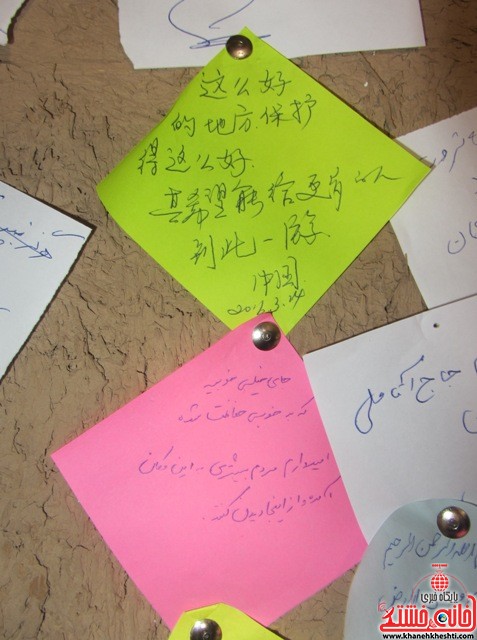 这么好
的地方.保护
得这么好.
真希望能有更多的人
到此一游
中国
2016.3.24
جای خیلی خوبیه
که به خوبی حفاظت شده
امیدوارم مردم بیشتری به این مکان
آمده و از اینجا دیدن کنند.
حاج آقا
الله الرحمن الرحیم
پایگاه خبری
خانه خشتی
www.khanehkheshti.com